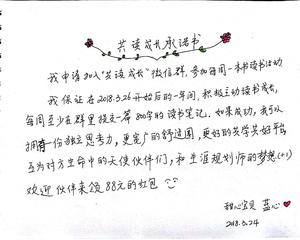 共读成长承诺书
我申请加入"共读成长"微信群，参加每周一本书读书活动
我保证在2018.3.26开始后的一年间，积极主动读书成长，
每周至少在群里提交一篇800字的读书笔记。如果成功，我可以
拥有一份独立思考力，更宽广的舒适圈，更好的共学共好平台，
互为对方生命中的天使伙伴们，和生涯规划师的梦想(+1)
欢迎伙伴来领88元的红包
甜心宝贝 蓝心
2018.3.24